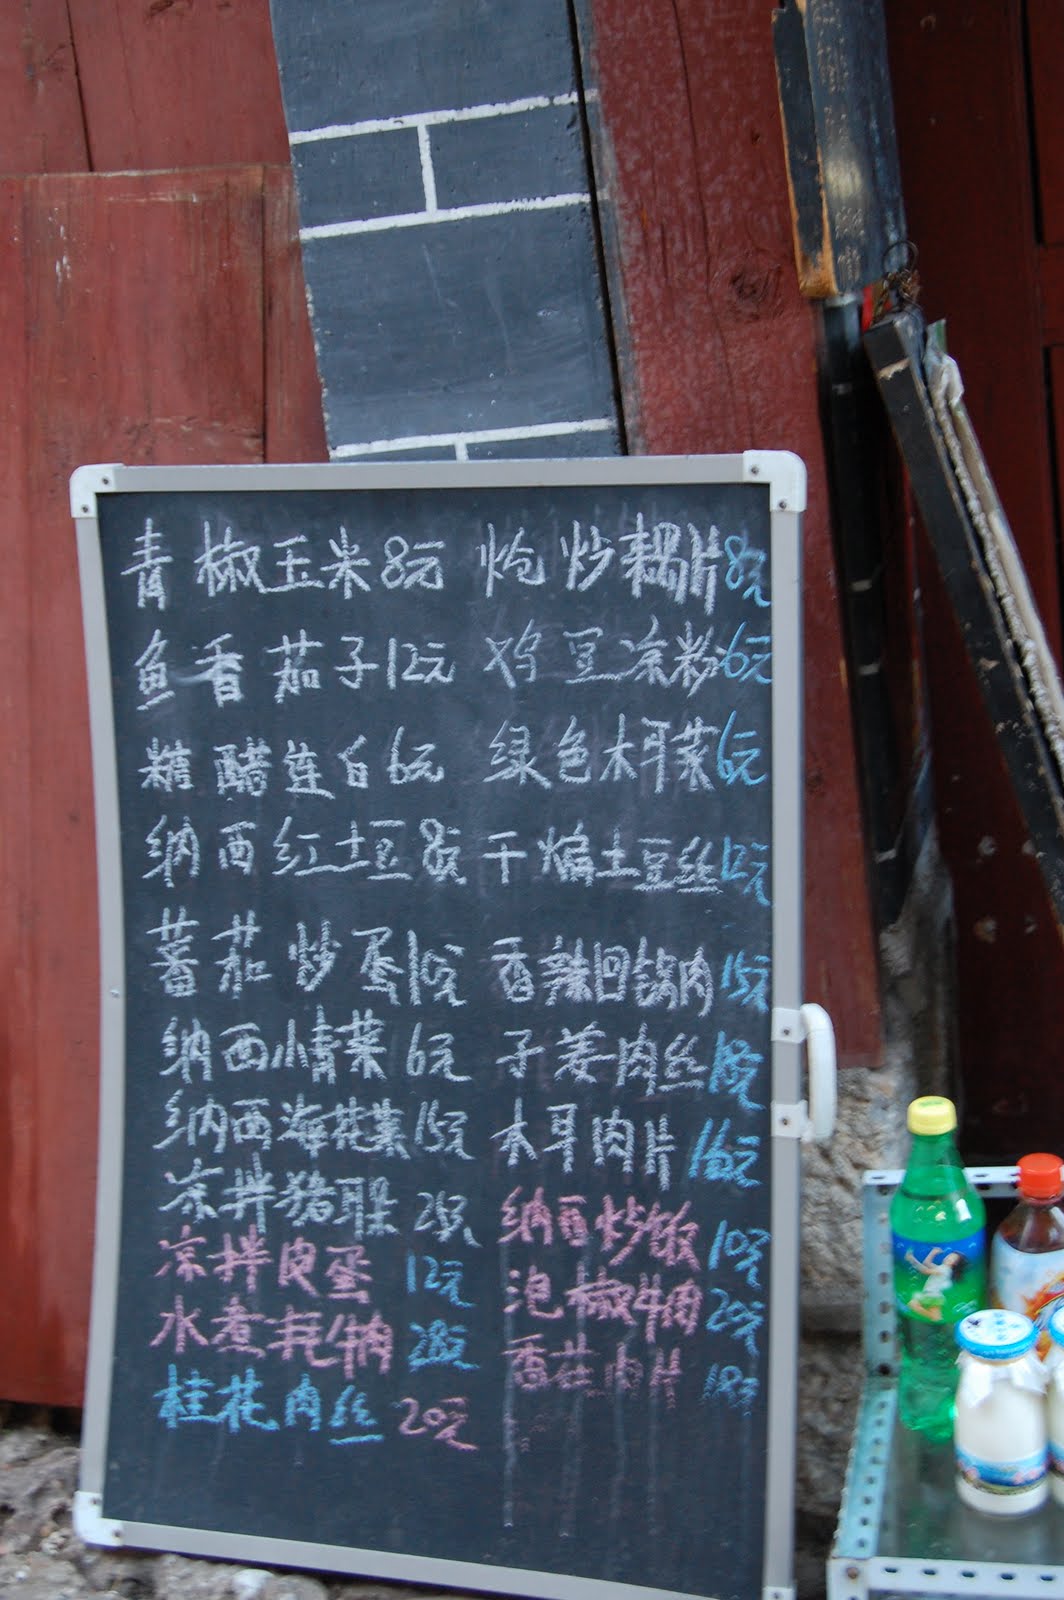 青椒玉米8元 炝炒藕片8元
鱼香茄子12元 鸡豆凉粉6元
糖醋莲白6元 绿色木耳菜6元
纳西红土豆8元 干煸土豆丝12元
蕃茄炒蛋10元 香辣回锅肉15元
纳西小青菜6元 子姜肉丝18元
纳西海花菜15元 木耳肉片16元
凉拌猪耳 纳西炒饭10元
凉拌皮蛋12元 泡椒牛肉20元
水煮牦牛肉28元 香菇肉片18元
桂花肉丝20元